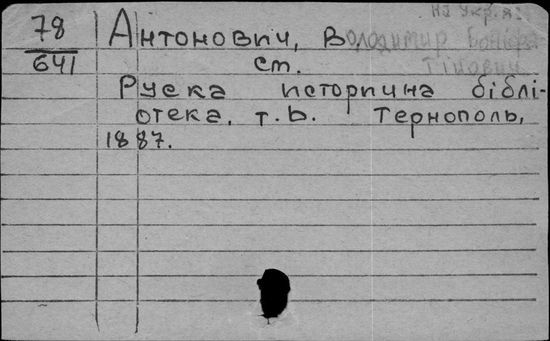 на укр.я:
78
641
Антонович, Володимир Боніфа
тійович
ст.
Руска історична біблі-
отека, т. Ь. Тернополь,
1887.